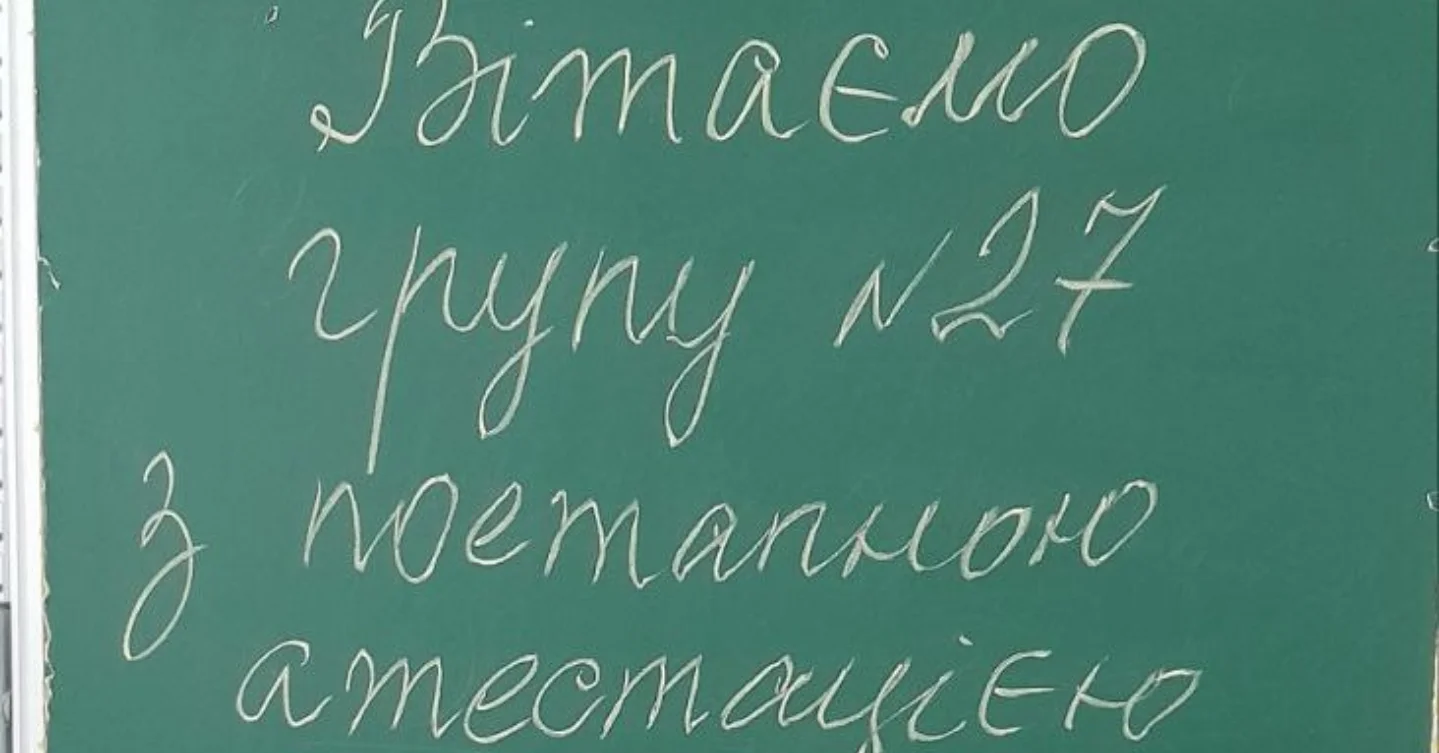 Вітаємо
групу N27
з поетапною
атестацією